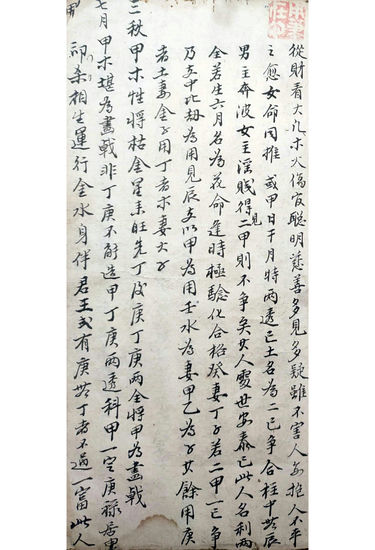 從財看大凡木火傷官聰明慈善多見多疑雖不害人每推人不平
之愈女命同推 或甲日干月時兩透己土名為二己爭合柱中無辰
男主奔波女主淫賤得見二甲則不爭矣其人處世安泰已此人名利兩
全若生六月名為花命逢時極驗化合格癸妻丁子若二甲一己爭
乃支中比劫為用見辰支以甲為用壬水為妻甲乙為子女餘用庚
者土妻金子用丁者木妻火子
三秋甲木性將枯金星乘旺先丁後庚丁庚兩全將甲為畫戟
七月甲木堪為畫戟非丁庚不能造甲丁庚兩透科甲一定庚祿居申
印杀相生運行金水身伴君王或有庚無丁者不過一富此人